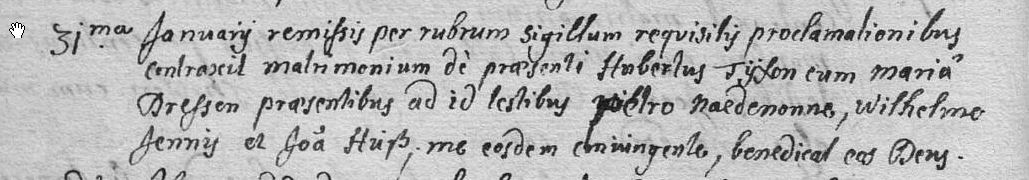 31ma Januarij remissis per rubrum sigillum requisitis proclamationibus
contraxit matrimonium dè præsenti Hubertus Tijson cum mariâ
Dressen præsentibus ad id testibus pietro naedenonne, Wilhelmo
Jennis et Joâ Huß, me eosdem coniungente, benedicat eos Deus.